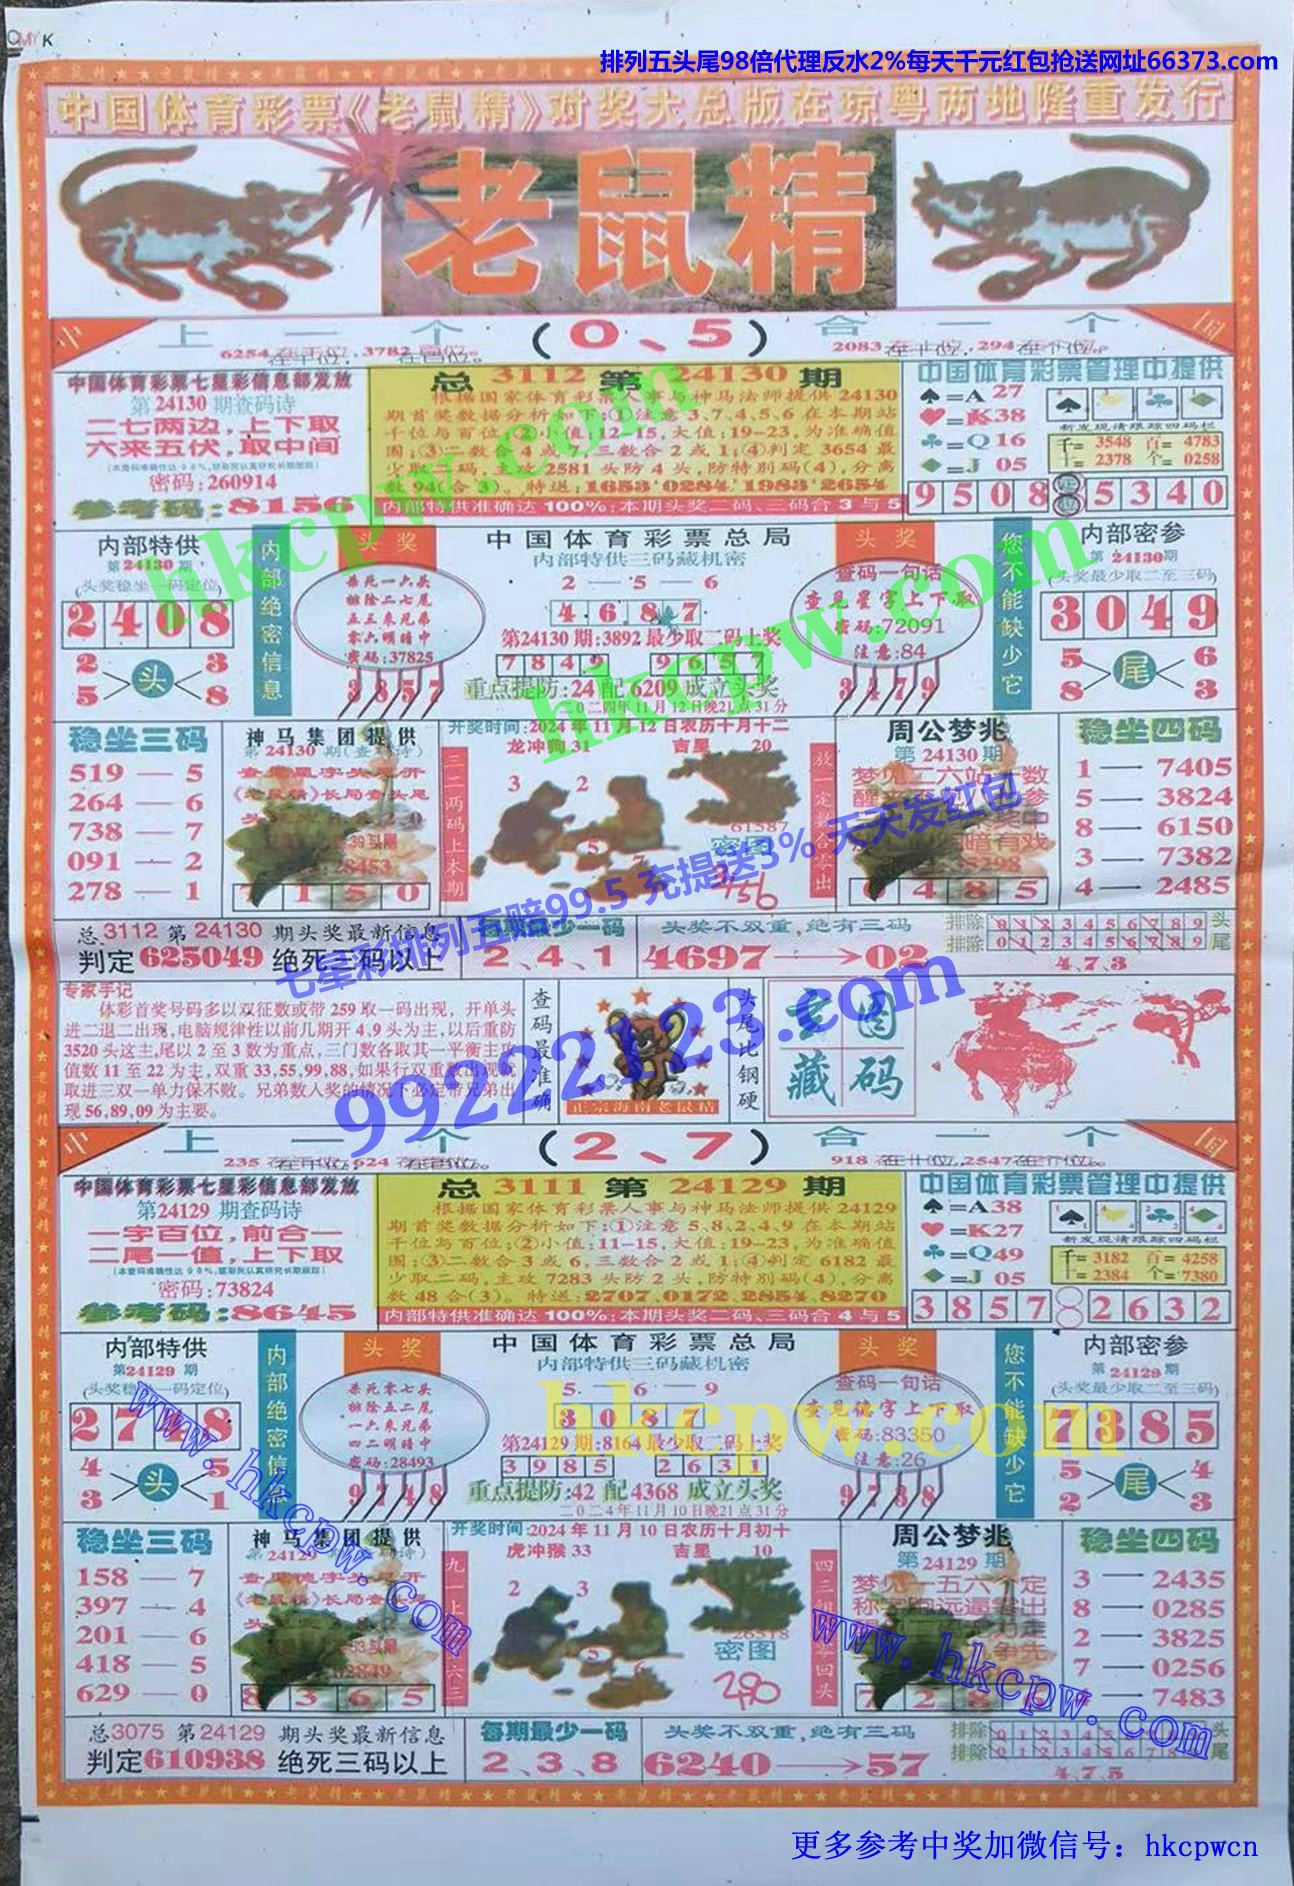 CMYK
排列五头尾98倍代理反水2%每天千元红包抢送网址66373.com
中国体育彩票《老鼠精》对奖大总版在琼粤两地隆重发行
老鼠精
上一个 (0、5) 合一个
中 国
6254在千位,3782在百位。
2083在十位,294在个位。
中国体育彩票七星彩信息部发放
第24130期查码诗
二七两边,上下取
六来五伏,取中间
密码:260914
参考码:8156
总3112第24130期
根据国家体育彩票人事与神马法师提供24130
期首奖数据分析如下:①注意3,7,4,5,6在本期站
千位与百位;②小值:12-15,大值:19-23,为准确值
围;③二数合4或 三数合2或1;④判定3654最
少取二码,主攻2581头防4头,防特别码(4),分离
数94(合3)。特送:1653 0284 1983 2654
内部特供准确达100%:本期头奖二码、三码合3与5
中国体育彩票管理中提供
♠=A 27
♥=K38
♣=Q16
♦=J 05
新发现请跟踪四码栏
千=3548 百=4783
十=2378 个=0258
9508 证位 5340
内部特供
第24130期
(头奖稳坐一码定位)
2408
2 3
头
5 8
内部绝密信息
头奖
杀死一六头
排除二七尾
五三来兄弟
零六明暗中
密码:37825
3857
中国体育彩票总局
内部特供三码藏机密
2—5—6
4687
第24130期:3892最少取二码上奖
7849 9657
重点提防:24配6209成立头奖
二0二四年11月12日晚21点31分
头奖
查码一句话
查见星字上下取
密码:72091
注意:84
3479
您不能缺少它
内部密参
第24130期
(头奖最少取二至三码)
3049
5 6
尾
8 3
稳坐三码
519—5
264—6
738—7
091—2
278—1
神马集团提供
第24130期(查码诗)
查见星字头尾开
《老鼠精》长局查头尾
7150
三二两码上本期
开奖时间:2024年11月12日农历十月十二
龙冲狗31 吉星 20
3 2
5
61587
密图
放一定数合去出
周公梦兆
第24130期
梦见二六站一数
0485
稳坐四码
1—7405
5—3824
8—6150
3—7382
4—2485
总3112第24130期头奖最新信息
判定625049绝死三码以上
每期最少一码
2、4、1
头奖不双重,绝有三码
4697→02
排除 0 1 2 3 4 5 6 7 8 9 头
排除 0 1 2 3 4 5 6 7 8 9 尾
4、7、3
专家手记
体彩首奖号码多以双征数或带259取一码出现,开单头
进二退二出现,电脑规律性以前几期开4,9头为主,以后重防
3520头这主,尾以2至3数为重点,三门数各取其一平衡主攻
值数11至22为主,双重33,55,99,88,如果行双重数出现就
取进三双一单力保不败。兄弟数入奖的情况下必定带兄弟出
现56,89,09为主要。
查码最准确
正宗海南老鼠精
头尾比钢硬
玄图藏码
上一个 (2、7) 合一个
中 国
235在千位,624在百位。
918在十位,2547在个位。
中国体育彩票七星彩信息部发放
第24129期查码诗
一字百位,前合一
二尾一值,上下取
密码:73824
参考码:8645
总3111第24129期
根据国家体育彩票人事与神马法师提供24129
期首奖数据分析如下:①注意5,8,2,4,9在本期站
千位与百位;②小值:11-15,大值:19-23,为准确值
围;③二数合3或6,三数合2或1;④判定6182最
少取二码,主攻7283头防2头,防特别码(4),分离
数48合(3)。特送:2707,0172 2854 8270
内部特供准确达100%:本期头奖二码、三码合4与5
中国体育彩票管理中提供
♠=A38
♥=K27
♣=Q49
♦=J 05
新发现请跟踪四码栏
千=3182 百=4258
十=2384 个=7380
3857 8 2632
内部特供
第24129期
(头奖稳坐一码定位)
2798
4 5
头
3 1
内部绝密信息
头奖
杀死零七头
排除五二尾
一六来兄弟
四二明暗中
密码:28493
9748
中国体育彩票总局
内部特供三码藏机密
5—6—9
3087
第24129期:8164最少取二码上奖
3985 2631
重点提防:42配4368成立头奖
二0二4年11月10日晚21点31分
头奖
查码一句话
查见德字上下取
密码:83350
注意:26
9738
您不能缺少它
内部密参
第24129期
(头奖最少取二至三码)
7385
5 4
尾
2 3
稳坐三码
158—7
397—4
201—6
418—5
629—0
神马集团提供
第24129期(查码诗)
查见德字头尾开
《老鼠精》长局查头尾
8365
九一上六三
开奖时间:2024年11月10日农历十月初十
虎冲猴33 吉星 10
2 3
5 6
26518
密图
290
周公梦兆
第24129期
梦见一五六个定
稳坐四码
3—2435
8—0285
2—3825
7—0256
1—7483
总3075第24129期头奖最新信息
判定610938绝死三码以上
每期最少一码
2、3、8
头奖不双重,绝有三码
6240→57
排除 0 1 2 3 4 5 6 7 8 9 头
排除 0 1 2 3 4 5 6 7 8 9 尾
4、7、5
hkcpw.com
hkcpw.com
七星彩排列五赔99.5 充提送3% 天天发红包
99222123.com
hkcpw.com
www.hkcpw.com
www.hkcpw.com
更多参考中奖加微信号：hkcpwcn